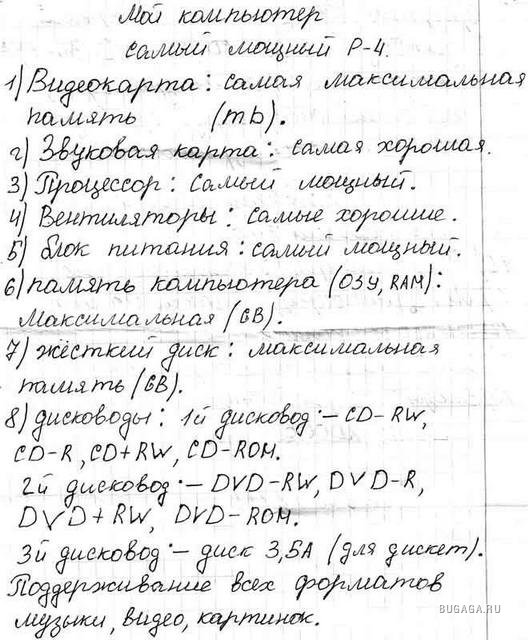 Мой компьютер
самый мощный Р-4.
1) Видеокарта: самая максимальная
память (mb).
2) Звуковая карта: самая хорошая.
3) Процессор: самый мощный.
4) Вентиляторы: самые хорошие.
5) блок питания: самый мощный.
6) память компьютера (ОЗУ, RAM):
Максимальная (GB).
7) жёсткий диск: максимальная
память (GB).
8) дисководы: 1й дисковод – CD-RW,
CD-R, CD+RW, CD-ROM.
2й дисковод – DVD-RW, DVD-R,
DVD+RW, DVD-ROM.
3й дисковод – диск 3,5А (для дискет).
Поддерживание всех форматов
музыки, видео, картинок.
BUGAGA.RU